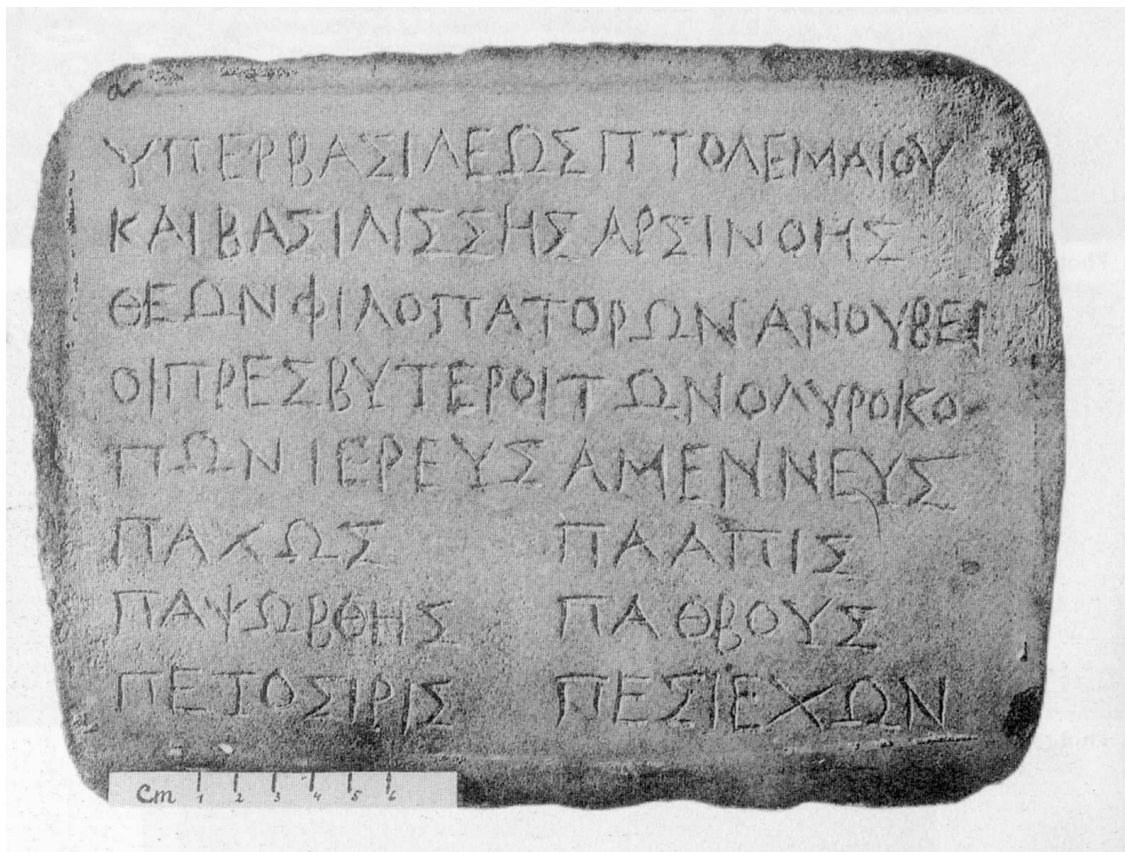 ΥΠΕΡΒΑΣΙΛΕΩΣΠΤΟΛΕΜΑΙΟΥ
ΚΑΙΒΑΣΙΛΙΣΣΗΣΑΡΣΙΝΟΗΣ
ΘΕΩΝΦΙΛΟΠΑΤΟΡΩΝΑΝΟΥΒΕΙ
ΟΙΠΡΕΣΒΥΤΕΡΟΙΤΩΝΟΛΥΡΟΚΟ
ΠΩΝΙΕΡΕΥΣΑΜΕΝΝΕΥΣ
ΠΑΧΩΣ ΠΑΑΠΙΣ
ΠΑΨΩΒΘΗΣ ΠΑΘΒΟΥΣ
ΠΕΤΟΣΙΡΙΣ ΠΕΣΙΕΧΩΝ
Cm 1 2 3 4 5 6